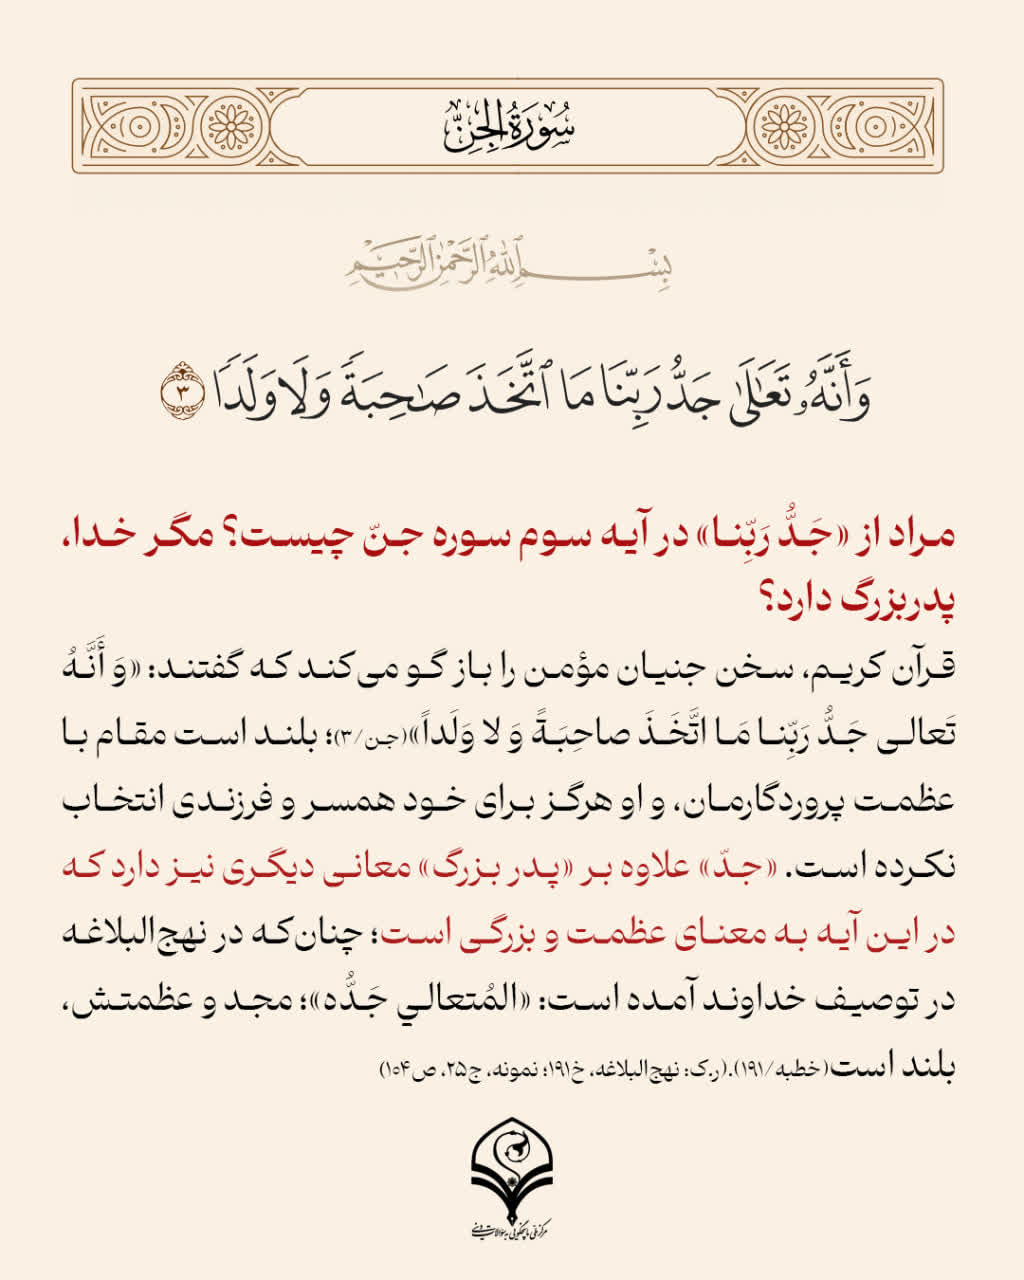 سُورَةُ الجِنِّ
بِسْمِ ٱللَّهِ ٱلرَّحْمَٰنِ ٱلرَّحِيمِ
وَأَنَّهُۥ تَعَٰلَىٰ جَدُّ رَبِّنَا مَا ٱتَّخَذَ صَٰحِبَةً وَلَا وَلَدًا ٣
مراد از «جَدُّ رَبِّنا» در آیه سوم سوره جنّ چیست؟ مگر خدا،
پدربزرگ دارد؟
قرآن کریم، سخن جنیان مؤمن را باز گو می‌کند که گفتند: «وَ أَنَّهُ
تَعالی جَدُّ رَبِّنا مَا اتَّخَذَ صاحِبَةً وَ لا وَلَداً»(جن/۳)؛ بلند است مقام با
عظمت پروردگارمان، و او هرگز برای خود همسر و فرزندی انتخاب
نکرده است. «جدّ» علاوه بر «پدر بزرگ» معانی دیگری نیز دارد که
در این آیه به معنای عظمت و بزرگی است؛ چنان‌که در نهج‌البلاغه
در توصیف خداوند آمده است: «المُتعالي جَدُّه»؛ مجد و عظمتش،
بلند است(خطبه/۱۹۱).(ر.ک: نهج‌البلاغه، خ۱۹۱؛ نمونه، ج۲۵، ص۱۵۴)
مرکز ملی پاسخگویی به سؤالات دینی